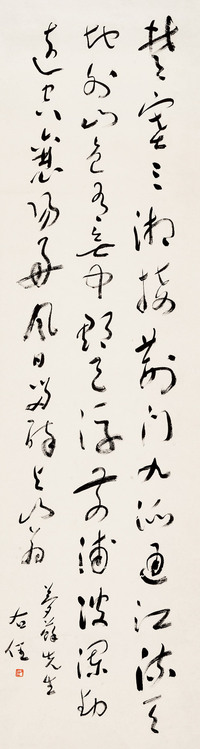 楚塞三湘接荊門九派通江流天
地外山色有無中郡邑浮前浦波瀾動
遠空襄陽好風日留醉與山翁
夢蘇先生
右任